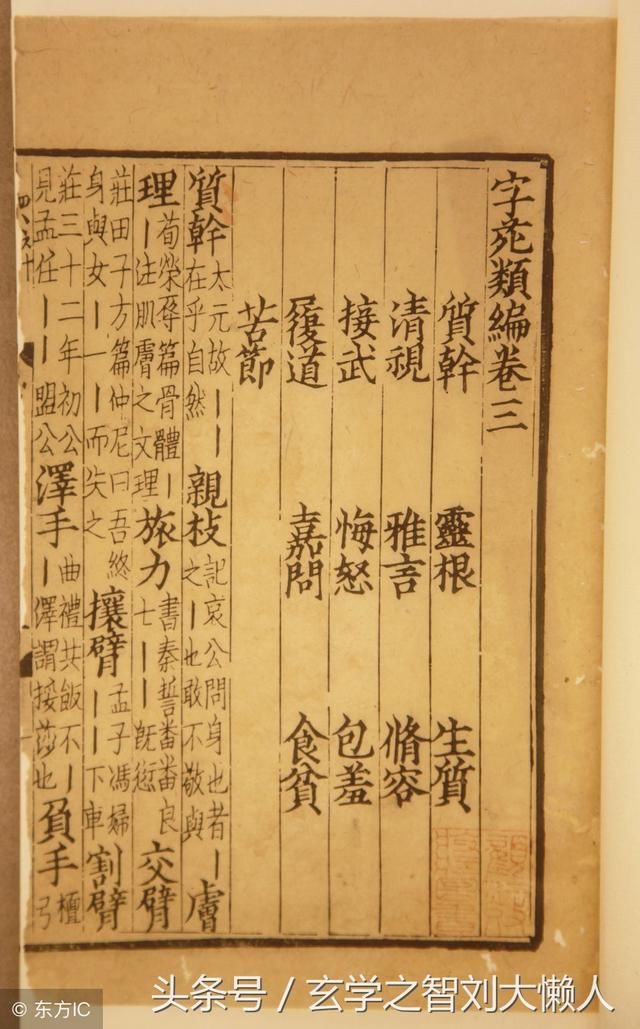 字苑類編卷三
質幹 靈根 生質
清視 雅言 脩容
接武 悔怒 包羞
履道 嘉問 食貧
苦節
質幹 太元故｜｜在乎自然 親枝 記哀公問身也者｜之｜也敢不敬與 膚
理 荀榮辱篇骨體｜｜注肌膚之文理 旅力 書秦誓番番良士｜｜既愆 交臂
莊田子方篇仲尼曰吾終身與女｜一｜而失之 攘臂 孟子馮婦｜｜下車 割臂
莊三十二年初公見孟任｜｜盟公 澤手 曲禮共飯不｜｜澤謂挼莎也 負手 檀弓
头条号 / 玄学之智刘大懒人
© 东方IC